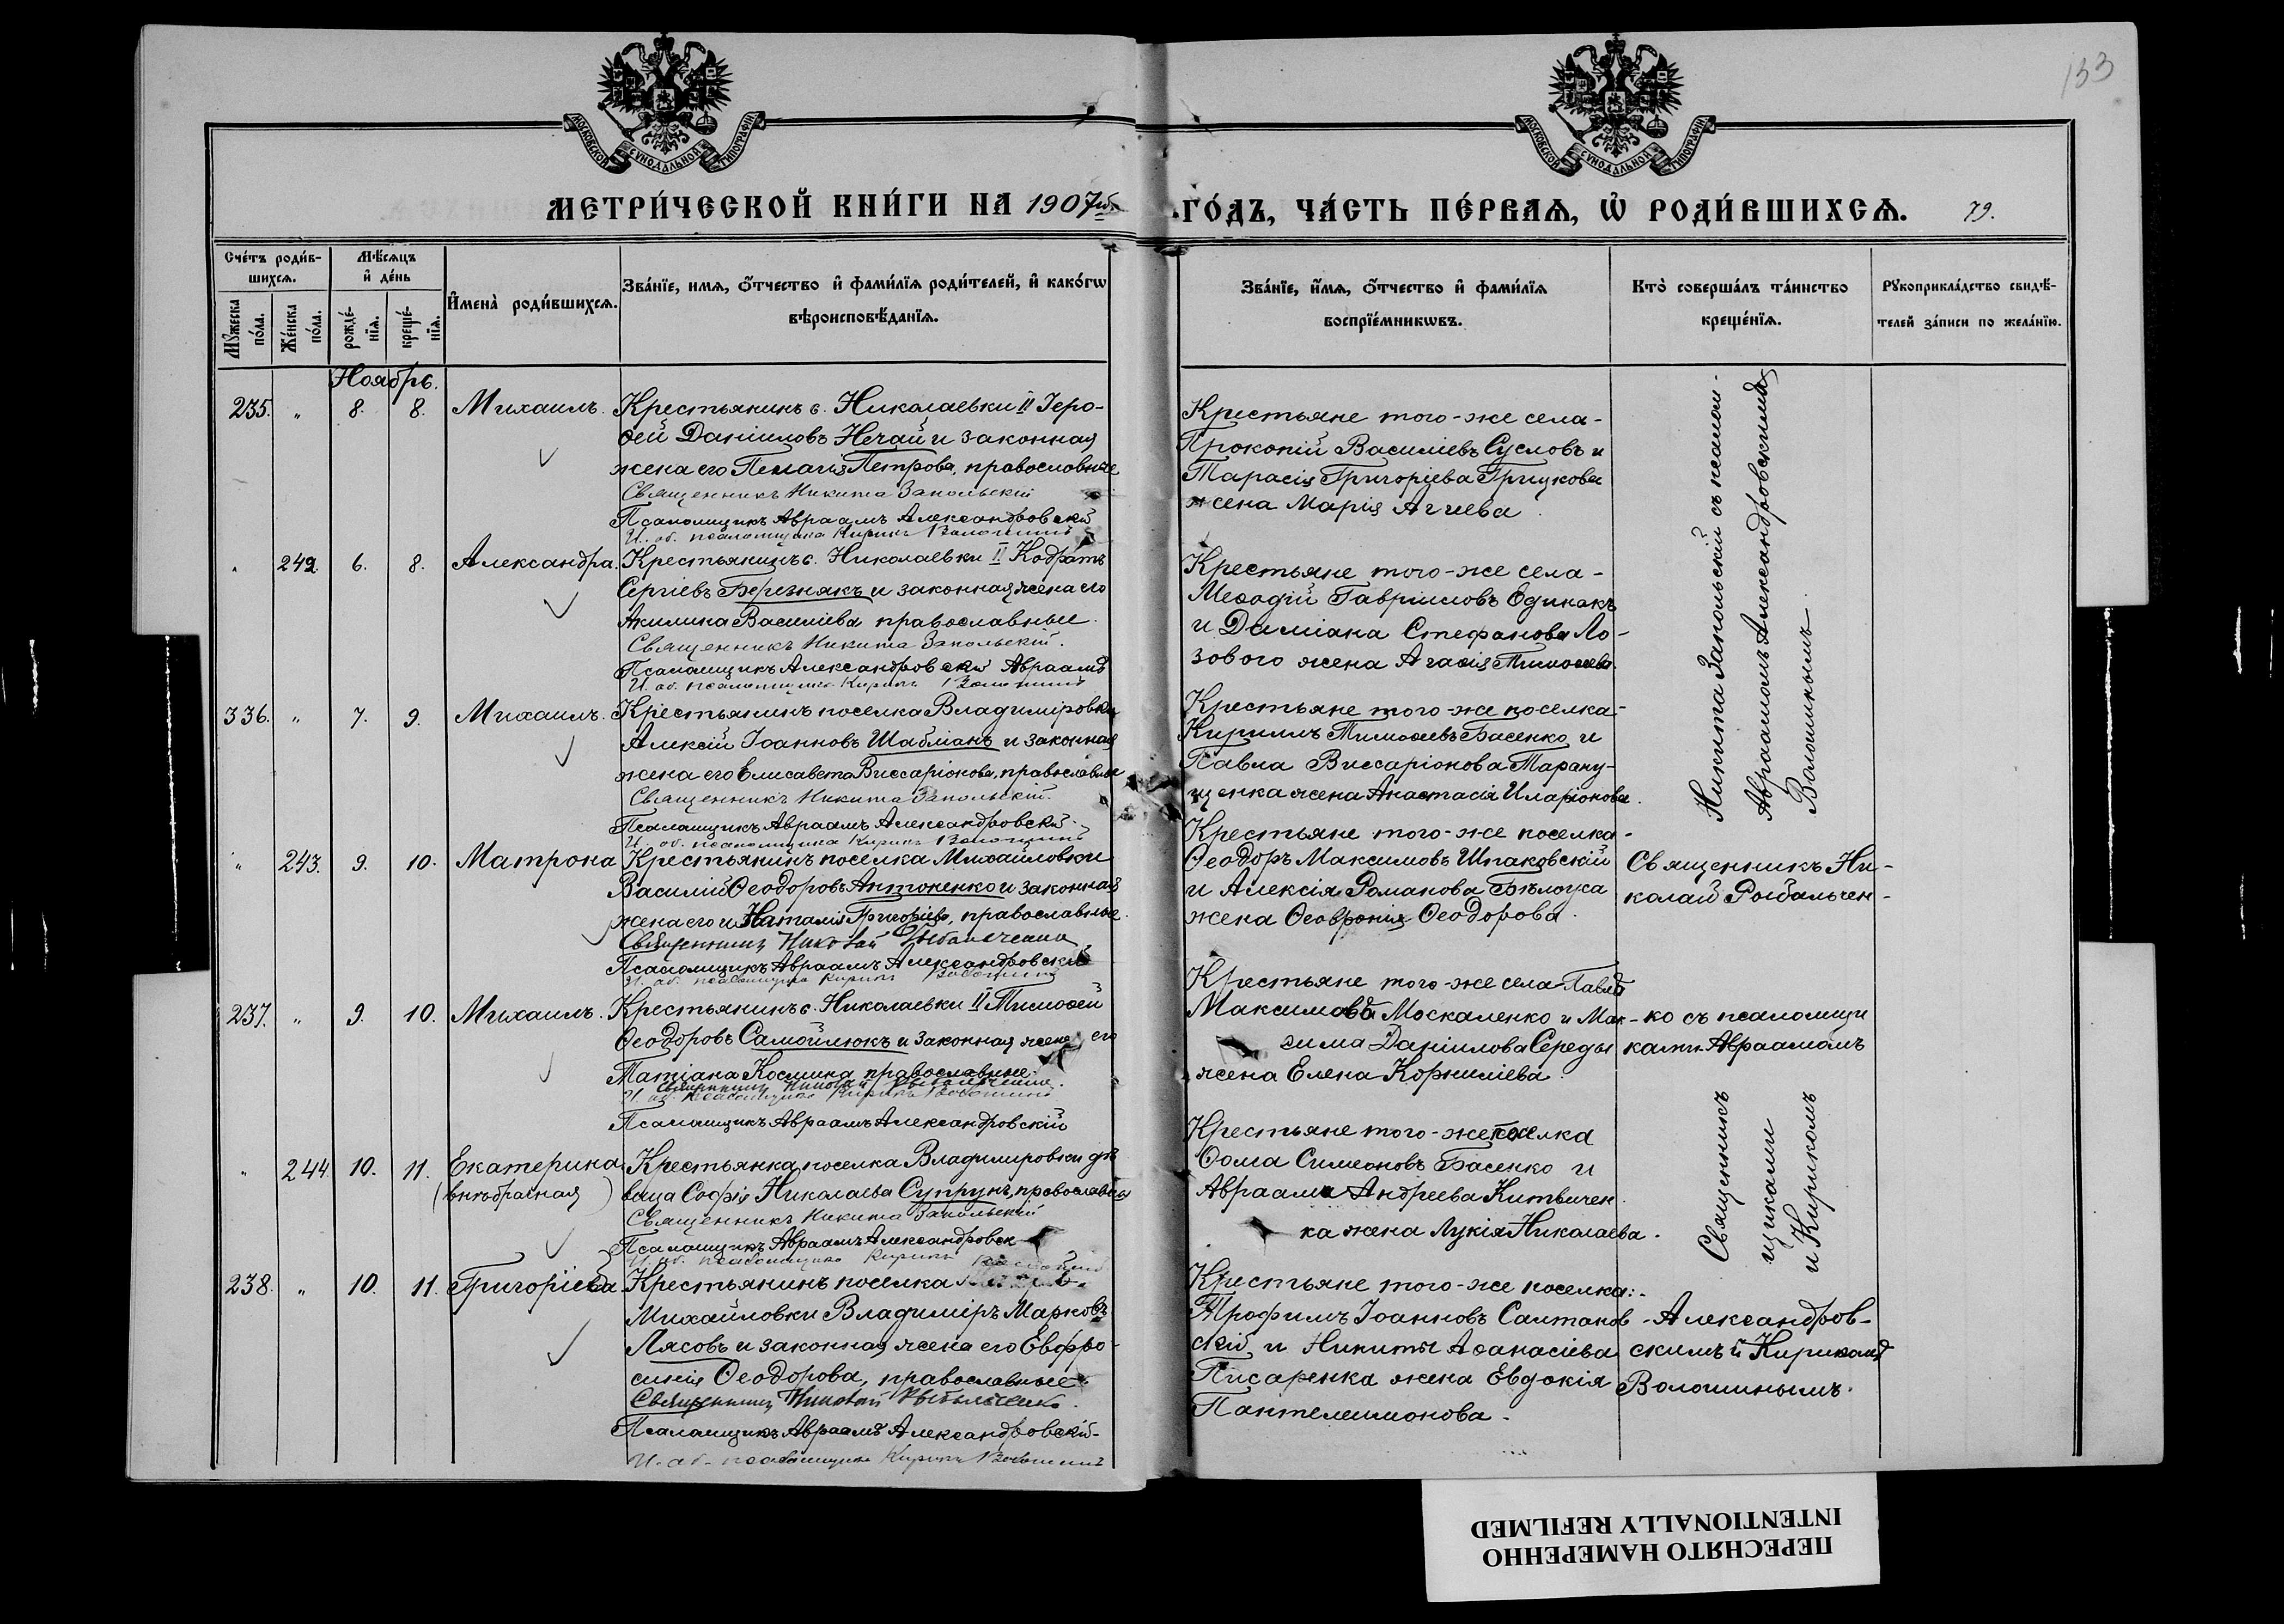 133
МОСКОВСКОЙ СѴНОДАЛЬНОЙ ТИПОГРАФІИ
МОСКОВСКОЙ СѴНОДАЛЬНОЙ ТИПОГРАФІИ
МЕТРИ́ЧЕСКОЙ КНИ́ГИ НА 1907й ГО́ДЪ, ЧА́СТЬ ПЕ́РВАѦ, Ѡ҆ РОДИ́ВШИХСѦ. 79.
Сче́тъ роди́в-
шихсѧ.
Мꙋ́жеска по́ла.
Же́нска по́ла.
Мѣ́сѧцъ
и҆ де́нь
рожде́-
нїѧ.
креще́-
нїѧ.
И҆мена̀ роди́вшихсѧ.
Зва́нїе, имѧ, ѻ҆́тчество и҆ фами́лїѧ роди́телей, и҆ како́гѡ
вѣроисповѣ́данїѧ.
Зва́нїе, и҆́мѧ, ѻ҆́тчество и҆ фами́лїѧ
воспрїе́мникѡвъ.
Кто̀ соверша́лъ та́инство
креще́нїѧ.
Рꙋкоприкла́дство свидѣ́-
телей за́писи по жела́нїю.
Ноябрь.
235. " 8. 8. Михаилъ. Крестьянинъ с. Николаевки II Іеро-
ѳей Даніиловъ Нечай и законная
жена его Пелагія Петрова, православные
Священникъ Никита Запольскій
Псаломщикъ Авраамъ Александровскій
И. об. псаломщика Кирикъ Волошинъ
Крестьяне того-же села-
Прокопій Василіевъ Сусловъ и
Тарасія Григоріева Грицкова
жена Марія Агіева.
" 242. 6. 8. Александра. Крестьянинъ с. Николаевки II Кодратъ
Сергіевъ Березнякъ и законная жена его
Акилина Василіева православные.
Священникъ Никита Запольскій.
Псаломщикъ Александровскій Авраамъ
И. об. псаломщика Кирикъ Волошинъ
Крестьяне того-же села-
Меѳодій Гавріиловъ Единакъ
и Даміана Стефанова Ло-
зового жена Агаѳія Тимоѳеева.
336. " 7. 9. Михаилъ. Крестьянинъ поселка Владиміровки
Алексій Іоанновъ Шабліанъ и законная
жена его Елисавета Виссаріонова, православные
Священникъ Никита Запольскій.
Псаломщикъ Авраамъ Александровскій.
И. об. псаломщика Кирикъ Волошинъ
Крестьяне того-же поселка-
Кириллъ Тимоѳеевъ Басенко и
Павла Виссаріонова Тарану-
щенка жена Анастасія Иларіонова.
Никита Запольскій съ псалом-
Авраамомъ Александровскимъ
Волошинымъ.
" 243. 9. 10. Матрона Крестьянинъ поселка Михайловки
Василій Ѳеодоровъ Антоненко и законная
жена его и Наталія Григоріева, православные.
Священникъ Николай Рыбальченко
Псаломщикъ Авраамъ Александровскій
И. об. псаломщика Кирикъ Волошинъ
Крестьяне того-же поселка-
Ѳеодоръ Максимовъ Шпаковскій
и Алексія Романова Бѣлоуса
жена Ѳеовронія Ѳеодорова.
Священникъ Ни-
колай Рыбальчен-
237. " 9. 10. Михаилъ. Крестьянинъ с. Николаевки II Тимоѳей
Ѳеодоровъ Самойлюкъ и законная жена его
Татіана Космина православные.
Священникъ Николай Рыбальченко.
И. об. псаломщика Кирикъ Волошинъ
Псаломщикъ Авраамъ Александровскій
Крестьяне того-же села Павелъ
Максимовъ Москаленко и Мак-
сима Даніилова Середы
жена Елена Корниліева.
ко съ псаломщи
ками Авраамомъ
" 244. 10. 11. Екатерина
(внѣбрачная)
Крестьянка поселка Владиміровки дѣ
вица Софія Николаева Супрунъ, православная
Священникъ Никита Запольскій
Псаломщикъ Авраамъ Александровск
И. об. псаломщика Кирикъ
Крестьяне того-же поселка
Ѳома Симеоновъ Басенко и
Авраама Андреева Китвичен
ка жена Лукія Николаева.
Священникъ
щиками
и Кирикомъ
238. " 10. 11. Григоріева Крестьянинъ поселка
Михайловки Владиміръ Марковъ
Лясовъ и законная жена его Евфро-
синія Ѳеодорова, православные.
Священникъ Николай Рыбальченко.
Псаломщикъ Авраамъ Александровскій-
И. об. псаломщика Кирикъ Волошинъ
Крестьяне того-же поселка:-
Трофимъ Іоанновъ Салтанов-
скій и Никиты Аѳанасіева
Писаренка жена Евдокія
Пантелеимонова.
Александров-
скимъ и Кирикомъ
Волошинымъ.
ПЕРЕСНЯТО НАМЕРЕННО
INTENTIONALLY REFILMED